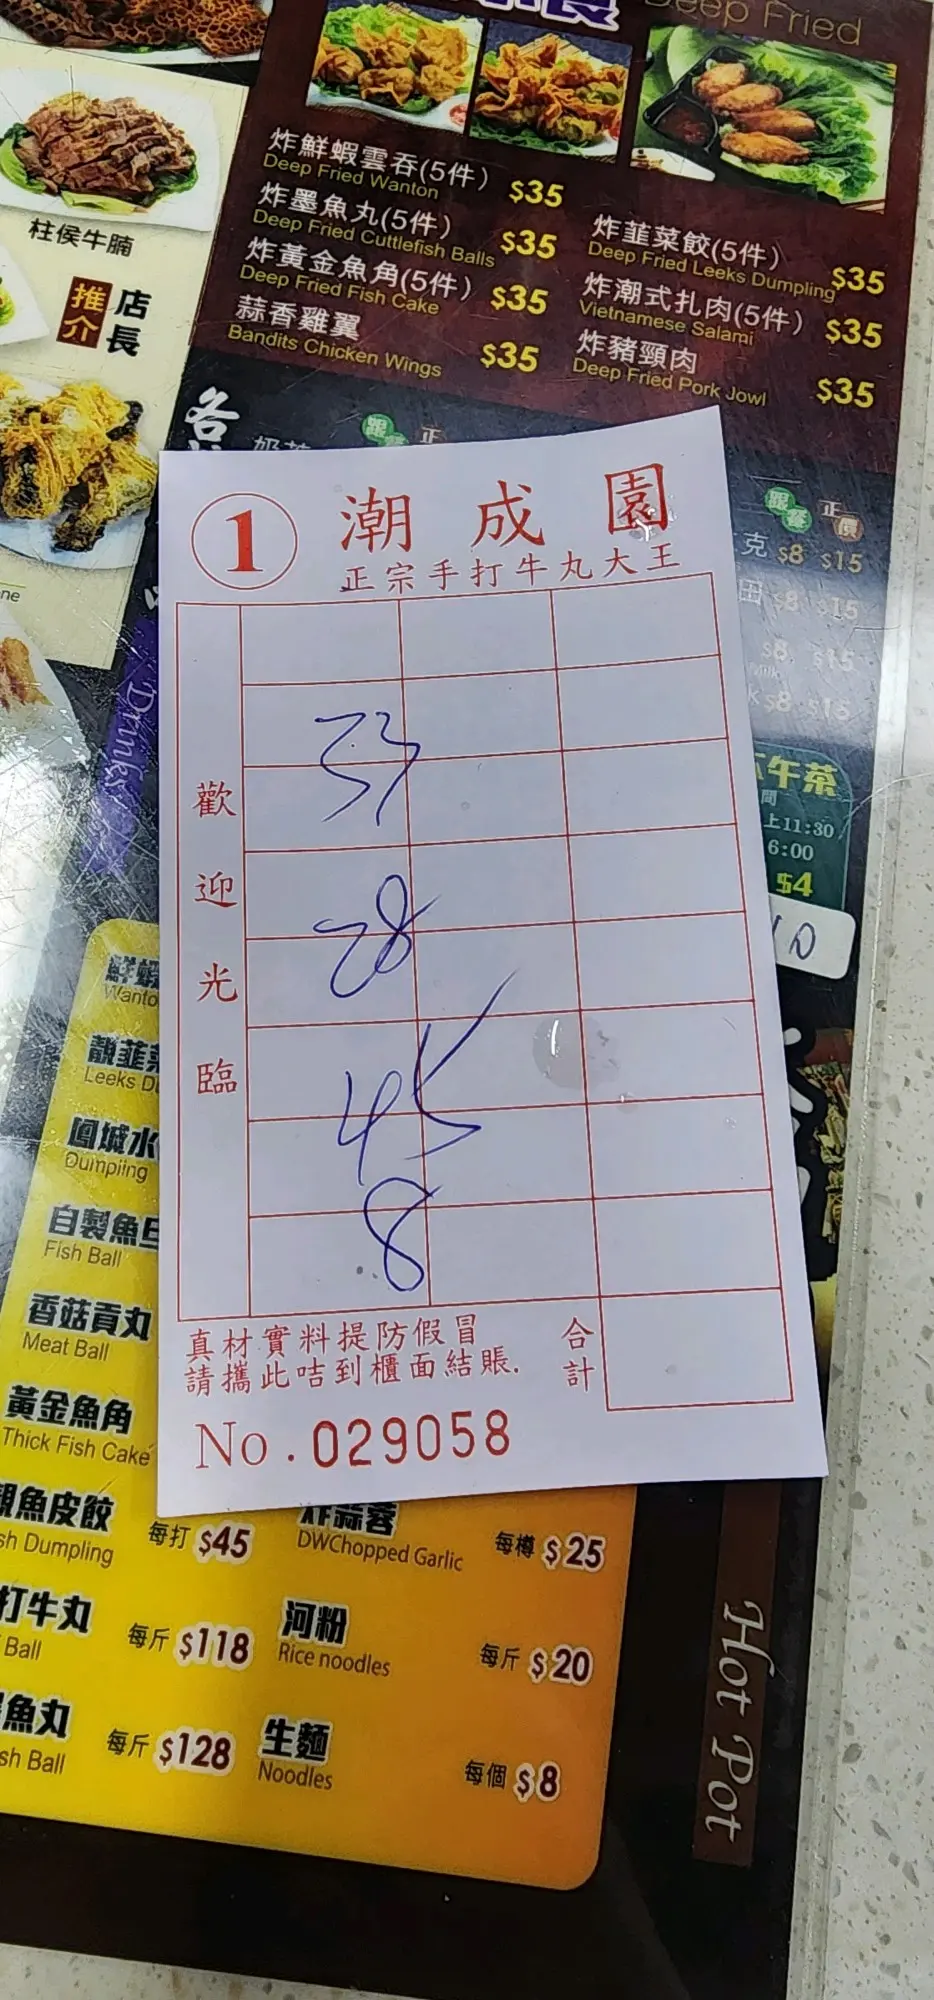 Deep Fried
炸鮮蝦雲吞(5件) $35
Deep Fried Wanton
炸墨魚丸(5件) $35
Deep Fried Cuttlefish Balls
炸黃金魚角(5件) $35
Deep Fried Fish Cake
蒜香雞翼 $35
Bandits Chicken Wings
炸韮菜餃(5件) $35
Deep Fried Leeks Dumpling
炸潮式扎肉(5件) $35
Vietnamese Salami
炸豬頸肉 $35
Deep Fried Pork Jowl
柱侯牛腩
店長
推介
各
跟餐 正
跟餐 正價
克 $8 $15
田 $8 $15
$8 $15
$8 $15
Drinks
午茶
上11:30
6:00
$4
1 潮成園
正宗手打牛丸大王
歡迎光臨
28
45
8
真材實料提防假冒
請攜此咭到櫃面結賬.
合計
No. 029058
鮮蝦
Wanto
靚韮菜
Leeks Du
鳳城水
Dumpiing
自製魚旦
Fish Ball
香菇貢丸
Meat Ball
黃金魚角
Thick Fish Cake
靚魚皮餃 每打 $45
sh Dumpling
打牛丸 每斤 $118
Ball
魚丸 每斤 $128
sh Ball
炸蒜蓉 每樽 $25
DWChopped Garlic
河粉 每斤 $20
Rice noodles
生麵 每個 $8
Noodles
Hot Pot